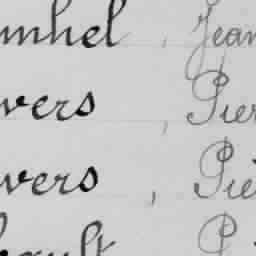 mhel, Jean
vers, Pier
vers, Pie
ault P